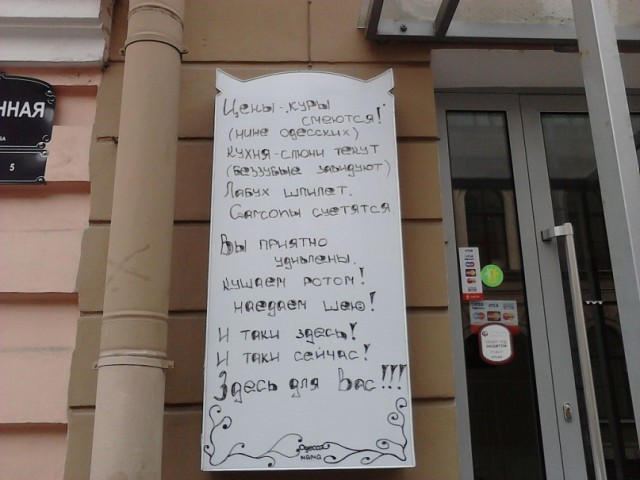 ННАЯ
5
Цены-куры
смеются!
(ниже одесских)
Кухня-слюни текут
(беззубые завидуют)
Лабух шпилет.
Garconы суетятся
Вы приятно
удивлены.
кушаем ротом!
наедаем шею!
И таки здесь!
И таки сейчас!
Здесь для Вас!!!
Одесса
мама